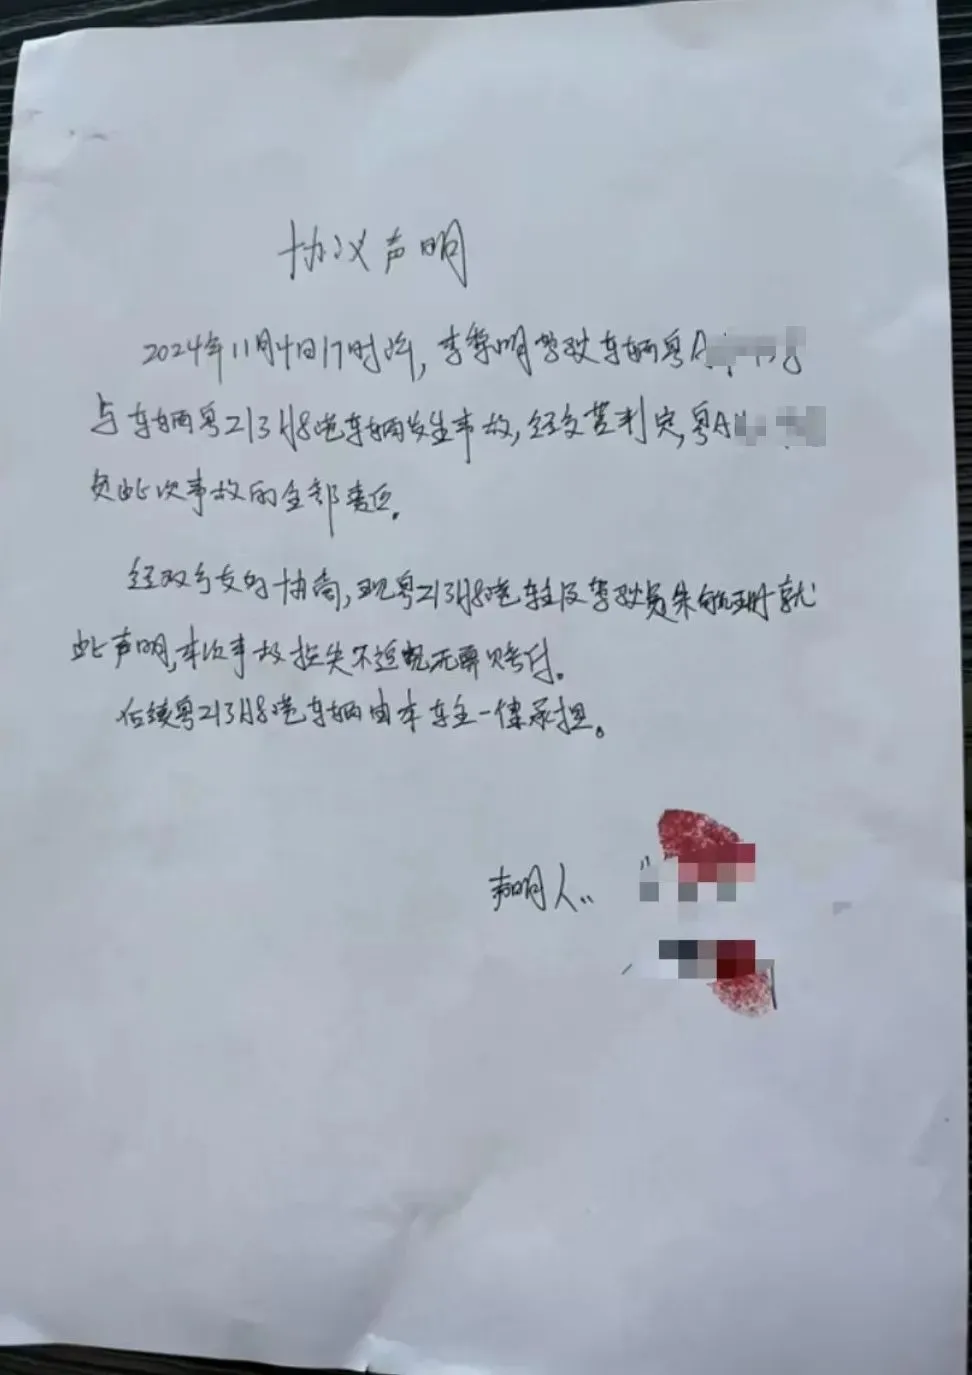 协议声明
2024年11月4日17时许,李季明驾驶车辆粤A
与车辆粤Z13H8港车辆发生事故,经交警判定,粤A
负此次事故的全部责任。
经双方友好协商,现粤Z13H8港车主及驾驶员朱就
此声明,本次事故损失不追究无需赔付。
后续粤Z13H8港车辆由本车主一律承担。
声明人: